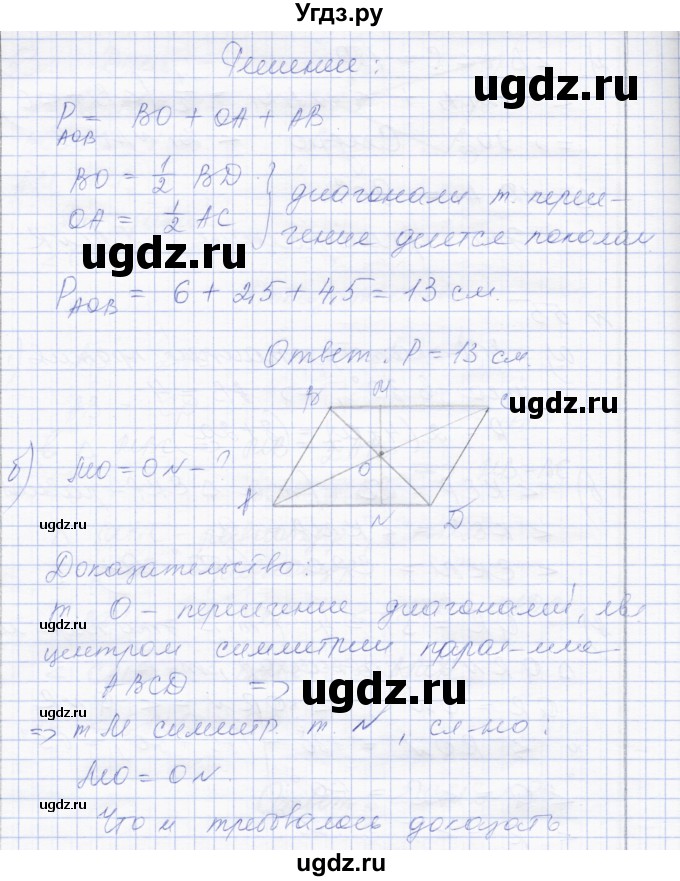 Угдз.ру
Решение:
ugdz.ru
P = BO + OA + AB
AOB
ugdz.ru
BO = 1/2 BD
OA = 1/2 AC } диагонали т. пересе-
чение делятся пополам
ugdz.ru
ugdz.ru
P AOB = 6 + 2,5 + 4,5 = 13 см.
Ответ: P = 13 см.
B M C
ugdz.ru
б) MO = ON - ?
O
A N D
ugdz.ru
Доказательство:
т. O - пересечение диагоналей, яв
ugdz.ru
центром симметрии парал-мма
ABCD =>
ugdz.ru
=> т M симметр. т. N, сл-но.
ugdz.ru
MO = ON.
ugdz.ru
Что и требовалось доказать.
ugdz.ru